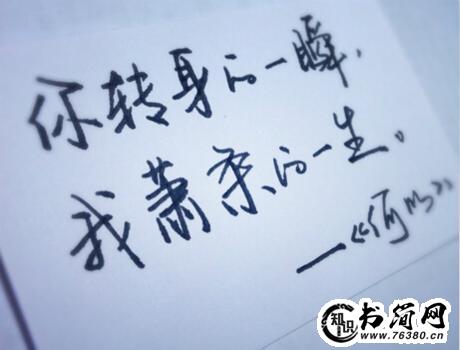 你转身的一瞬，
我萧条的一生。
—《何以》
知识
书简网
www.76380.cn